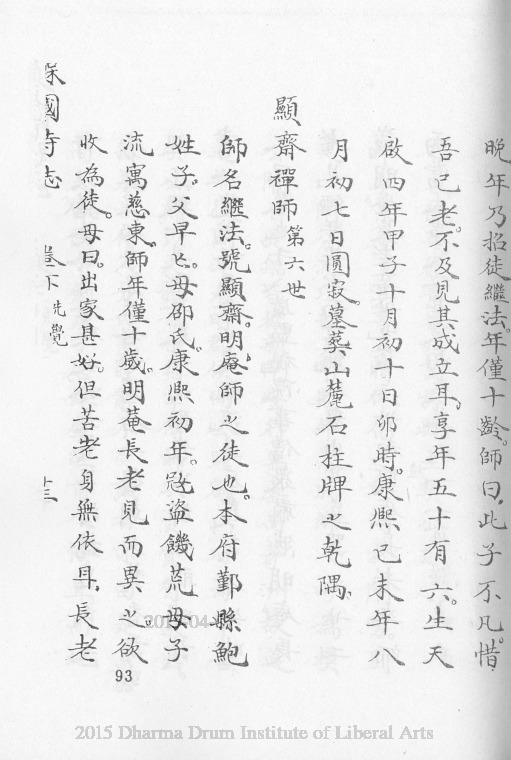 晚年乃招徒繼法。年僅十齡。師曰。此子不凡。惜
吾已老。不及見其成立耳。享年五十有六。生天
啟四年甲子十月初十日卯時。康熙己未年八
月初七日圓寂。墓葬山麓石柱牌之乾隅。
顯齋禪師第六世
師名繼法。號顯齋。明庵師之徒也。本府鄞縣鮑
姓子。父早亡。母邵氏。康熙初年。寇盜饑荒。母子
流寓慈東。師年僅十歲。明菴長老見而異之。欲
收為徒。母曰。出家甚好。但苦老身無依耳。長老
保國寺志 卷下 先覺 十三
93
2015 Dharma Drum Institute of Liberal Arts